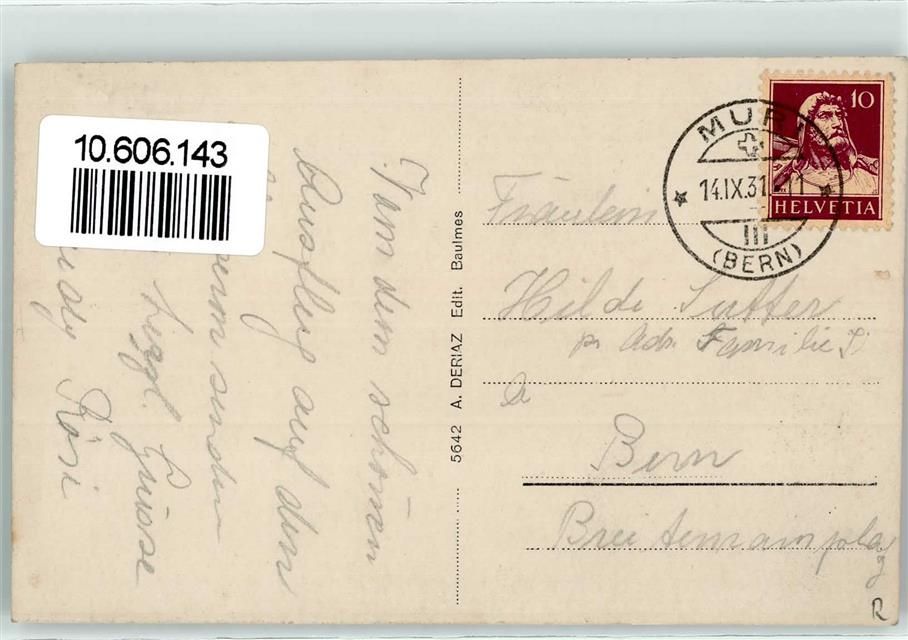 10.606.143
Von dem schönen
Ausflug auf den
senden
herzl. Grüsse
Rösi
5642 A. DERIAZ Edit. Baulmes
10
HELVETIA
MURI
14.IX.31
III
(BERN)
Fräulein
Hilde Sutter
p. Adr. Familie
Bern
Breitenrainplatz
R